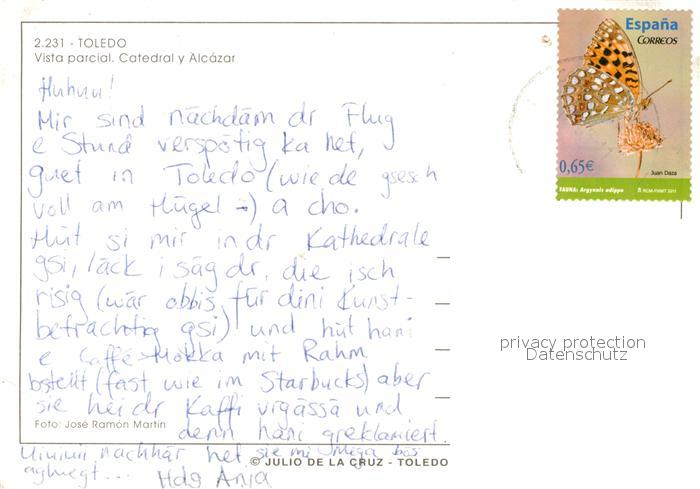 2.231 - TOLEDO
Vista parcial. Catedral y Alcázar
España
CORREOS
0,65€
Juan Daza
FAUNA: Argynnis adippe
RCM-FNMT 2011
Huhuu!
Mir sind nächdäm dr Flug
e Stund verspötig ka het,
guet in Toledo (wie de gsesch
voll am Hügel =)) a cho.
Hüt si mir in dr Kathedrale
gsi, läck i säg dr, die isch
risig (wär öbbis für dini Kunst-
betrachtig gsi) und hüt hani
e Caffé-Mokka mit Rahm
bstellt (fast wie im Starbucks) aber
sie hei dr Kaffi vrgässä und
denn hani greklamiert.
Uiuiuii nachhär het sie mi mega bös
agluegt... Hdg Anja
privacy protection
Datenschutz
Foto: José Ramón Martín
© JULIO DE LA CRUZ - TOLEDO